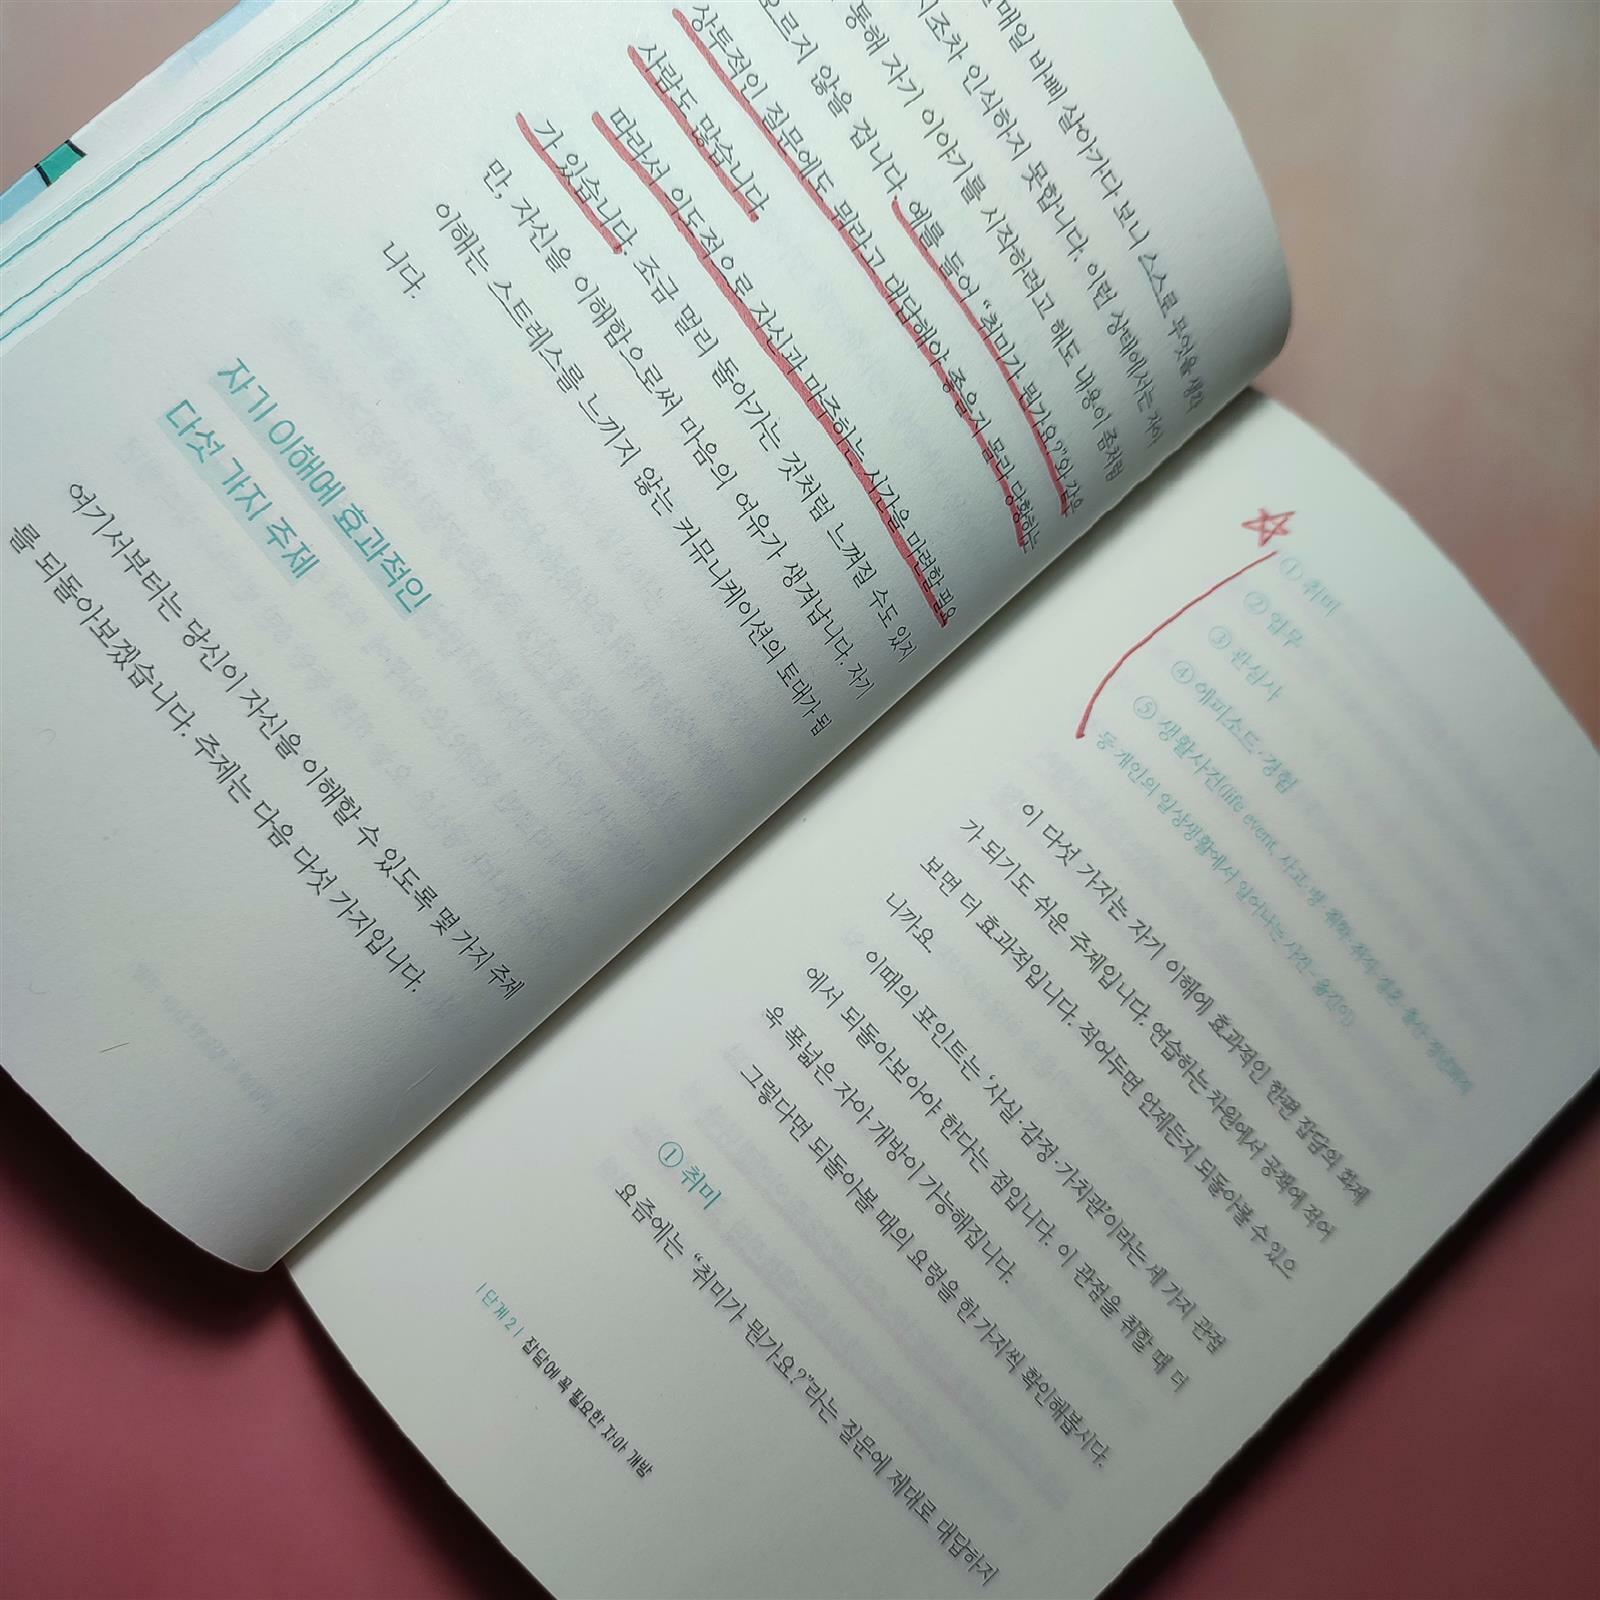 매일 바삐 살아가다 보니 스스로 무엇을 생각
조차 인식하지 못합니다. 이런 상태에서는 자아
통해 자기 이야기를 시작하려고 해도 내용이 좀처럼
오르지 않을 겁니다. 예를 들어 “취미가 뭔가요?”와 같은
상투적인 질문에도 뭐라고 대답해야 좋을지 몰라 당황하는
사람도 많습니다.
따라서 의도적으로 자신과 마주하는 시간을 마련할 필요
가 있습니다. 조금 멀리 돌아가는 것처럼 느껴질 수도 있지
만, 자신을 이해함으로써 마음의 여유가 생겨납니다. 자기
이해는 스트레스를 느끼지 않는 커뮤니케이션의 토대가 됩
니다.
자기 이해에 효과적인
다섯 가지 주제
여기서부터는 당신이 자신을 이해할 수 있도록 몇 가지 주제
를 되돌아보겠습니다. 주제는 다음 다섯 가지입니다.
① 취미
② 업무
③ 관심사
④ 에피소드·경험
⑤ 생활사건(life event, 사고·병·취직·결혼·출산
등 개인의 일상생활에서 일어나는 사건-옮긴이)
이 다섯 가지는 자기 이해에 효과적인 한편 잡담의 화제
가 되기도 쉬운 주제입니다. 연습하는 차원에서 공책에 적어
보면 더 효과적입니다. 적어두면 언제든지 되돌아볼 수 있으
니까요.
이때의 포인트는 ‘사실·감정·가치관’이라는 세 가지 관점
에서 되돌아보아야 한다는 점입니다. 이 관점을 취할 때 더
욱 폭넓은 자아 개방이 가능해집니다.
그렇다면 되돌아볼 때의 요령을 한 가지씩 확인해봅시다.
① 취미
요즘에는 “취미가 뭔가요?”라는 질문에 제대로 대답하지
| 단계 2 | 잡담에 꼭 필요한 자아 개방